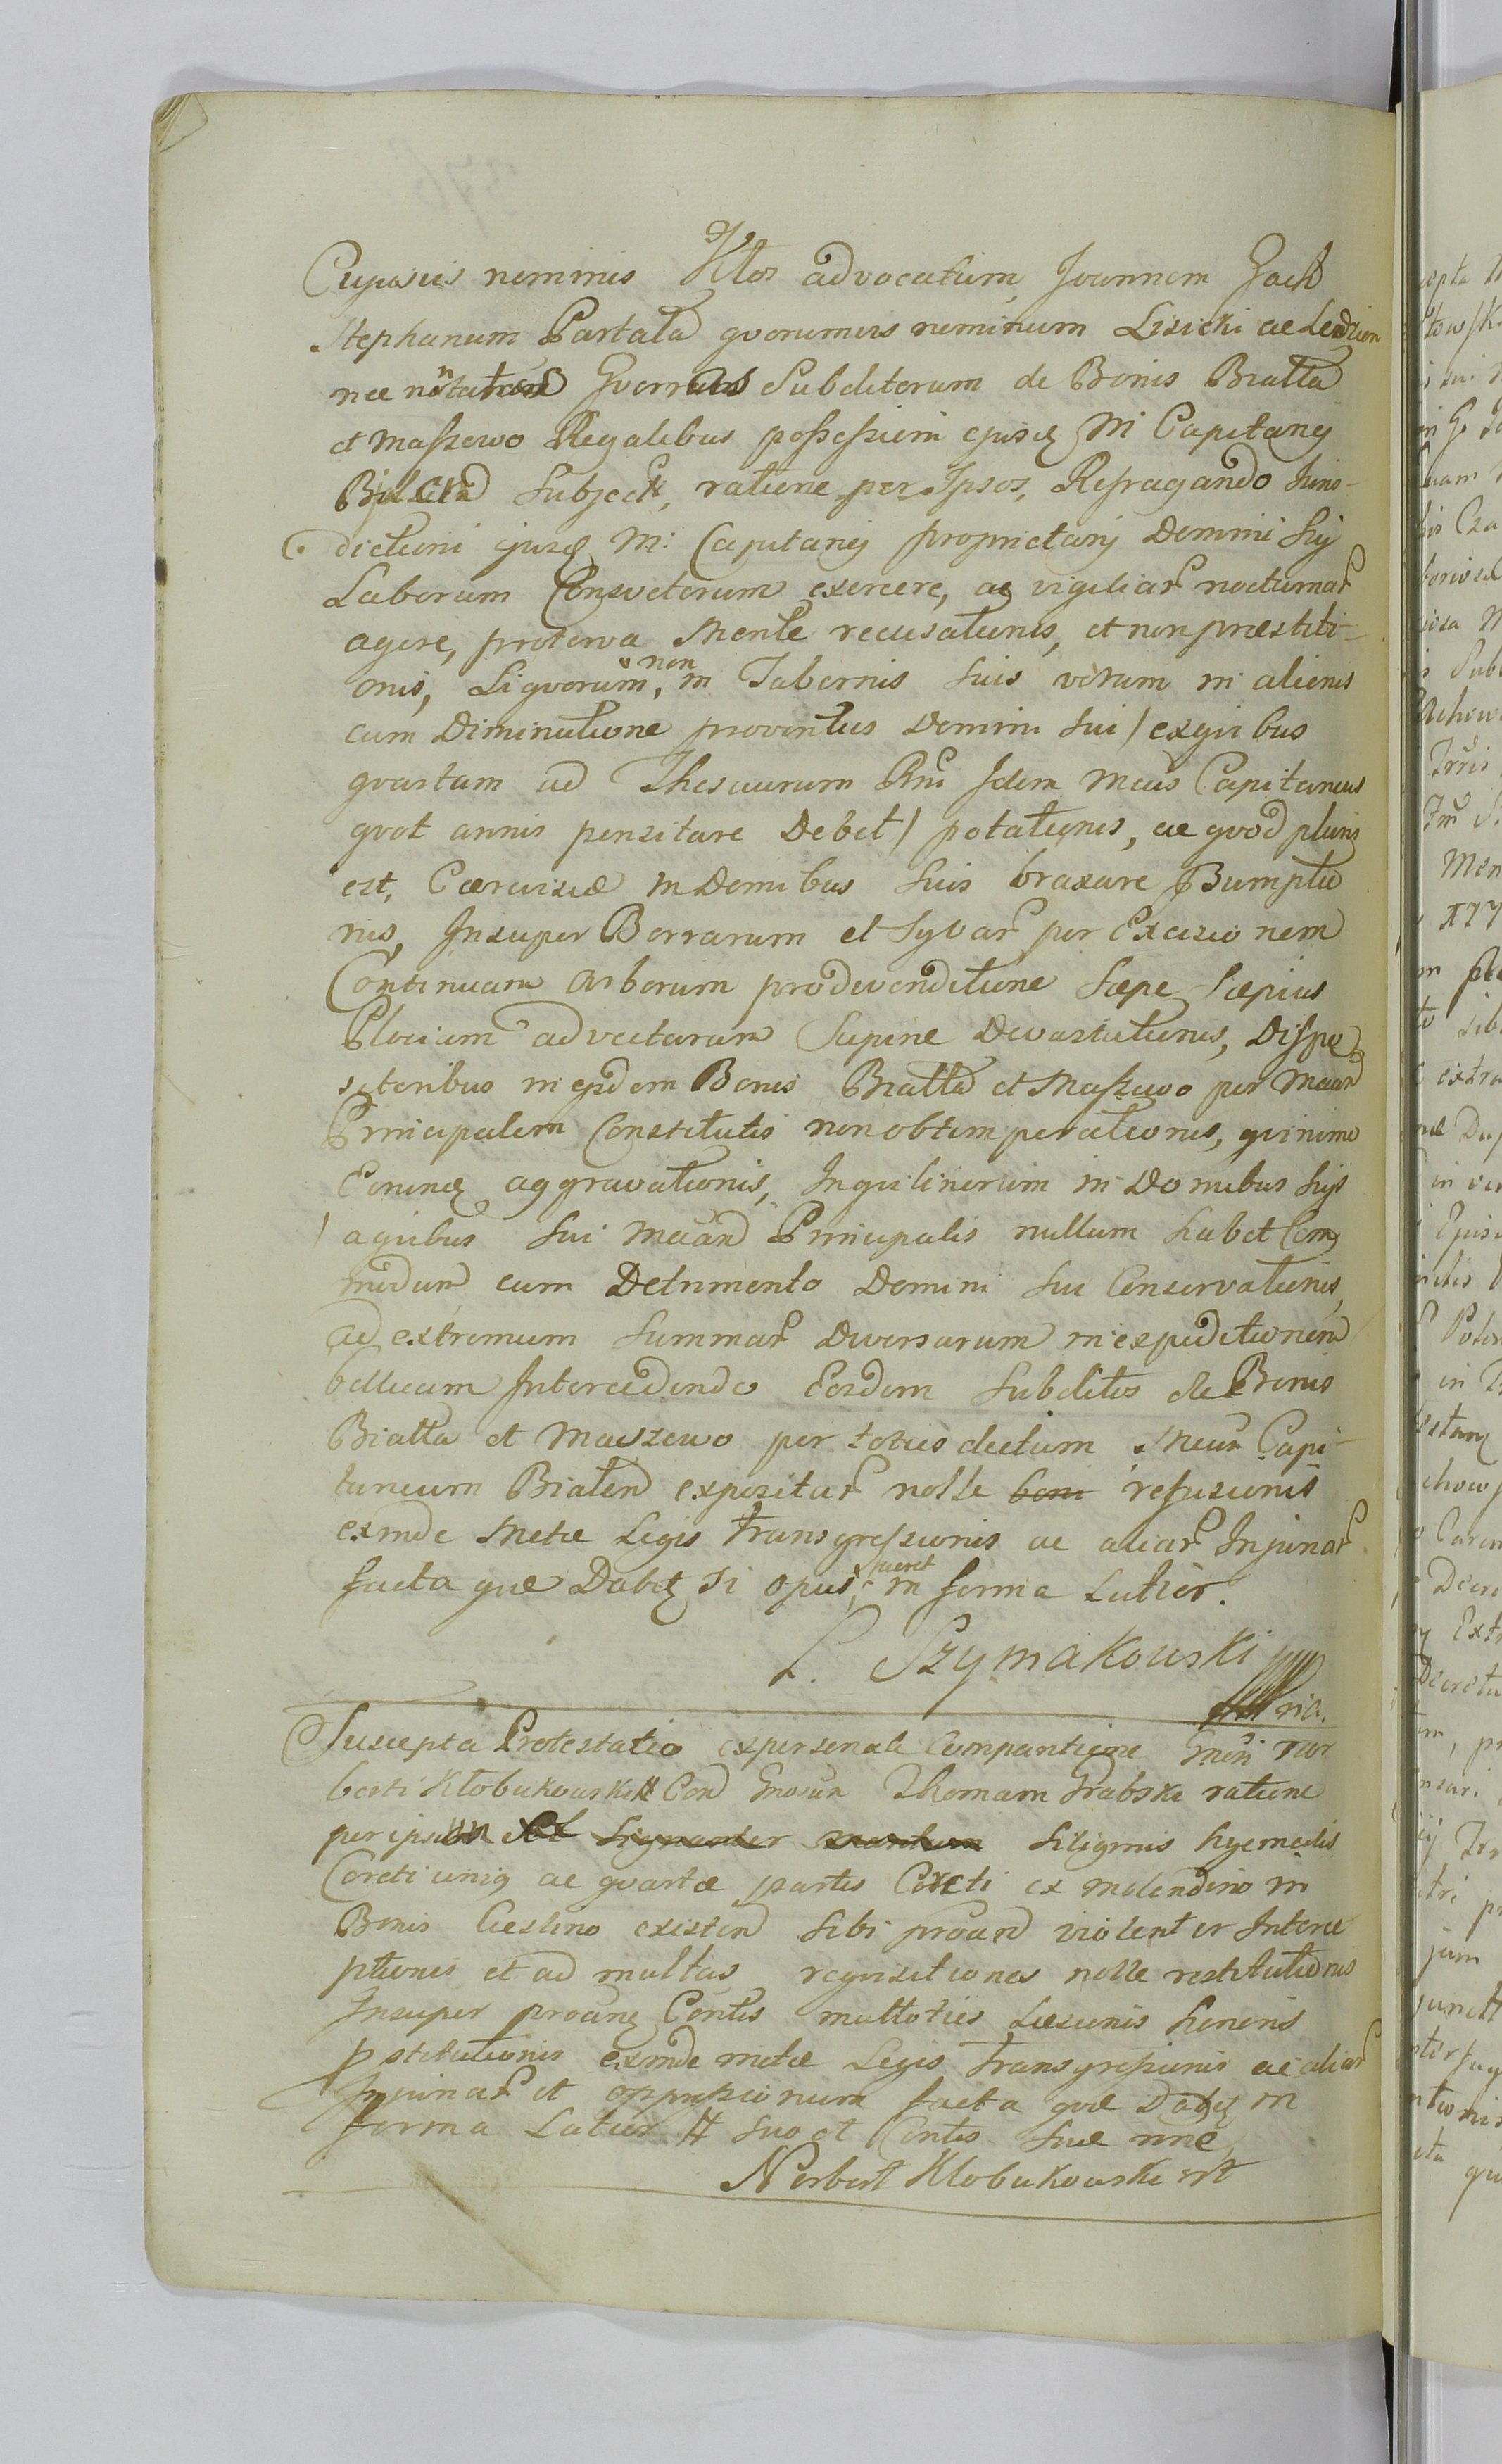 Cujusvis nominis Kłos advocatum, Joannem Jack
Stephanum Partała qvorumvis nominum Lisicki ac
Subditorum de Bonis Białła
et Maszewo Regalibus possessioni ejusq M Capitanej
Subject, ratione per Ipsos, Refragando Juris-
dictioni ejusq M: Capitanej proprietarij Domini Sui
Laborum Consvetorum exercere, ac vigiliar nocturnar
agere, proterva Mente recusationis, et non præstiti-
onis, Liqvorum, non in Tabernis suis verum in alienis
cum Diminutione proventus Domini sui / exqvibus
qvartam ad Thesaurum Rni Idem Mcus Capitaneus
qvot annis pensitare Debet / potationis, ac qvod pluris
est, Cærevisiæ in Domibus suis braxare Sumptio
nis, Insuper Borrarum et Sylvar per Excisionem
Continuam Arborum pro divenditione Sæpe Sæpius
Plociam advectarum Supine Devastationis, Dispo
sitoribus in ejsdem Bonis Białła et Maszewo per
Principalem Constitutis non obtemperationis, qvinimo
aggravationis, Inqvilinorum in Domibus suis
/ aqvibus sui Principalis nullum habet Com
modum cum Detrimento Domini sui Conservationis,
ad extremum Summar Diversarum in expeditionem
bellicam Intercedendo Eosdem Subditos de Bonis
Białła et Maszewo per toties dictum Mcum Capi-
taneum Bialen expositar nolle boni refusionis
exinde Metæ Legis transgressionis ac aliar Injuriar
facta qvæ Dabit si opus fuerit in forma Latior.
L. Szymakowski
Suscepta Protestatio ex personali Comparitione Gnosi Nor
berti Kłobukowski Con Gnosum Thomam Grabski ratione
per ipsum siliginis hyemalis
Coreti unius ac qvartæ partis Coreti ex Molendino in
Bonis Cieslino existen sibi proan violenter Interce
ptionis et ad multas reqvisitiones nolle restitutionis
Insuper Contis multoties Læsionis honoris
pstitutionis exinde metæ Legis transgressionis ac aliar
Injuriar et oppressionum facta qvæ Dabit in
forma Latior H suo et Contis suæ nne
Norbert Kłobukowski